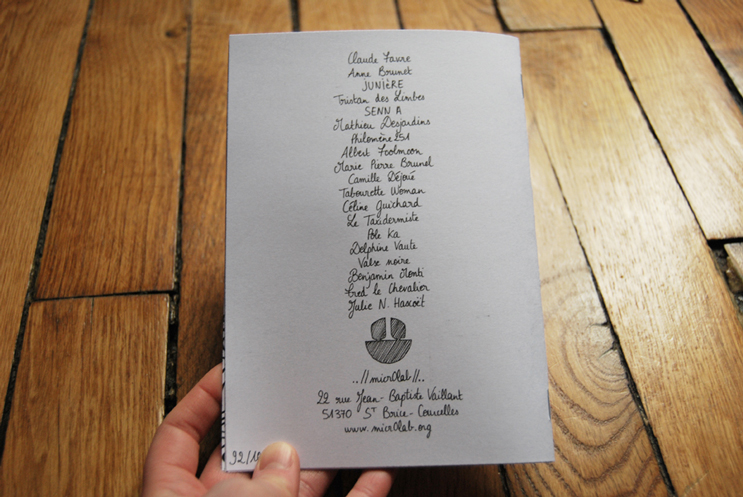 Claude Favre
Anne Brunet
JUNIÈRE
Tristan des Limbes
SENN A
Mathieu Desjardins
Philomène 251
Albert Foolmoon
Marie Pierre Brunel
Camille Déjoué
Tabourette Woman
Céline Guichard
Le Taxidermiste
Pole Ka
Delphine Vaute
Valse noire
Benjamin Monti
Fred le Chevalier
Julie N. Hascoët
..//micr0lab//..
22 rue Jean-Baptiste Vaillant
51370 ST Brice-Courcelles
www.micr0lab.org
92/1